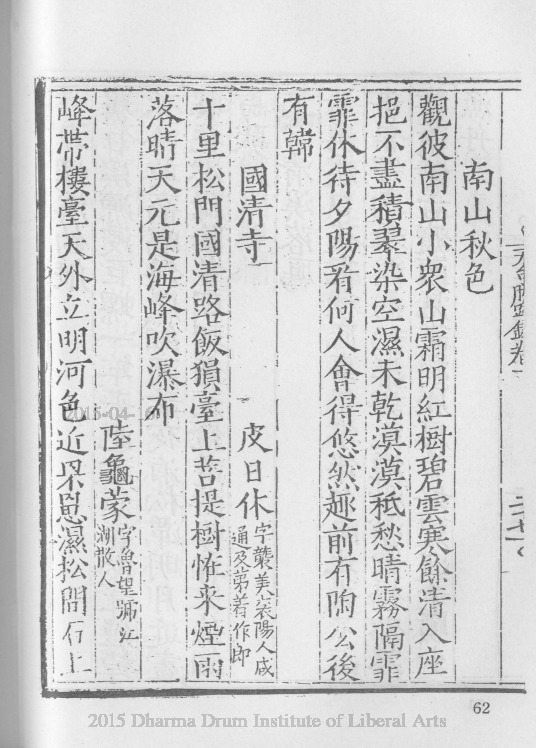 南山秋色
觀彼南山小衆山霜明紅樹碧雲寒餘清入座
挹不盡積翠染空濕未乾漠漠秪愁晴霧隔霏
霏休待夕陽看何人會得悠然趣前有陶公後
有韓
國清寺 皮日休 字襲美襄陽人咸
通及第著作郎
十里松門國清路飯猿臺上菩提樹怪来煙雨
落晴天元是海峰吹瀑布
陸龜蒙 字魯望號江
湖散人
峰帶樓臺天外立明河色近罘罳濕松間石上
62
2015-04-
2015 Dharma Drum Institute of Liberal Arts